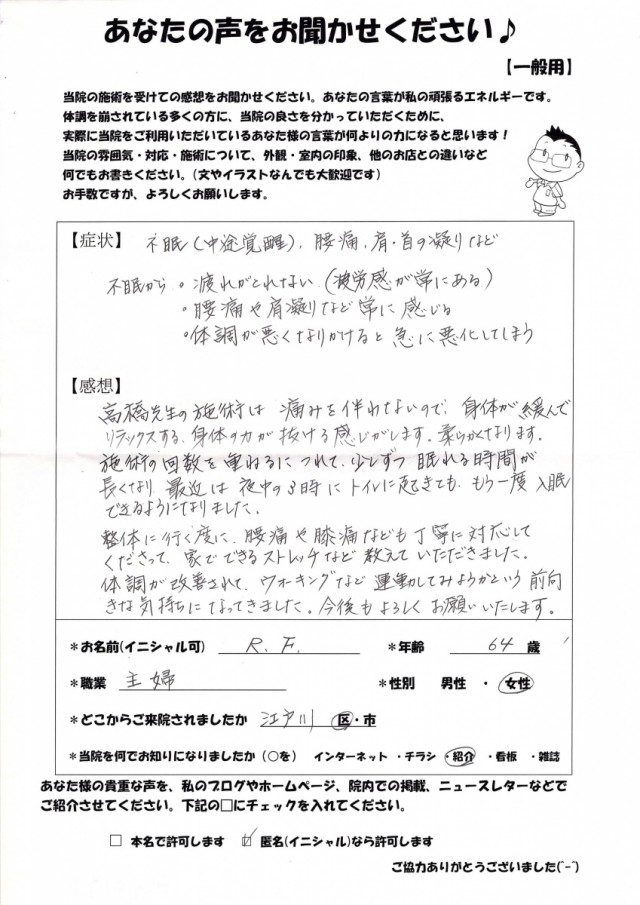 あなたの声をお聞かせください♪
【一般用】
当院の施術を受けての感想をお聞かせください。あなたの言葉が私の頑張るエネルギーです。
体調を崩されている多くの方に、当院の良さを分かっていただくために、
実際に当院をご利用いただいているあなた様の言葉が何よりの力になると思います！
当院の雰囲気・対応・施術について、外観・室内の印象、他のお店との違いなど
何でもお書きください。（文やイラストなんでも大歓迎です）
お手数ですが、よろしくお願いします。
【症状】 不眠（中途覚醒）、腰痛、肩・首の凝りなど
不眠から ・疲れがとれない（疲労感が常にある）
・腰痛や肩凝りなど常に感じる
・体調が悪くなりかけると急に悪化してしまう
【感想】
高橋先生の施術は痛みを伴わないので、身体が緩んで
リラックスする、身体の力が抜ける感じがします。柔らかくなります。
施術の回数を重ねるにつれて、少しずつ眠れる時間が
長くなり、最近は夜中の3時にトイレに起きても、もう一度入眠
できるようになりました。
整体に行く度に、腰痛や膝痛なども丁寧に対応して
くださって、家でできるストレッチなど教えていただきました。
体調が改善されて、ウォーキングなど運動してみようかという前向
きな気持ちになってきました。今後もよろしくお願いいたします。
＊お名前(イニシャル可) R.F. ＊年齢 64 歳
＊職業 主婦 ＊性別 男性 ・ 女性
＊どこからご来院されましたか 江戸川 区・市
＊当院を何でお知りになりましたか（○を） インターネット ・チラシ ・紹介 ・看板 ・雑誌
あなた様の貴重な声を、私のブログやホームページ、院内での掲載、ニュースレターなどで
ご紹介させてください。下記の□にチェックを入れてください。
□ 本名で許可します ☑ 匿名(イニシャル)なら許可します
ご協力ありがとうございました(ｰ-ｰ)